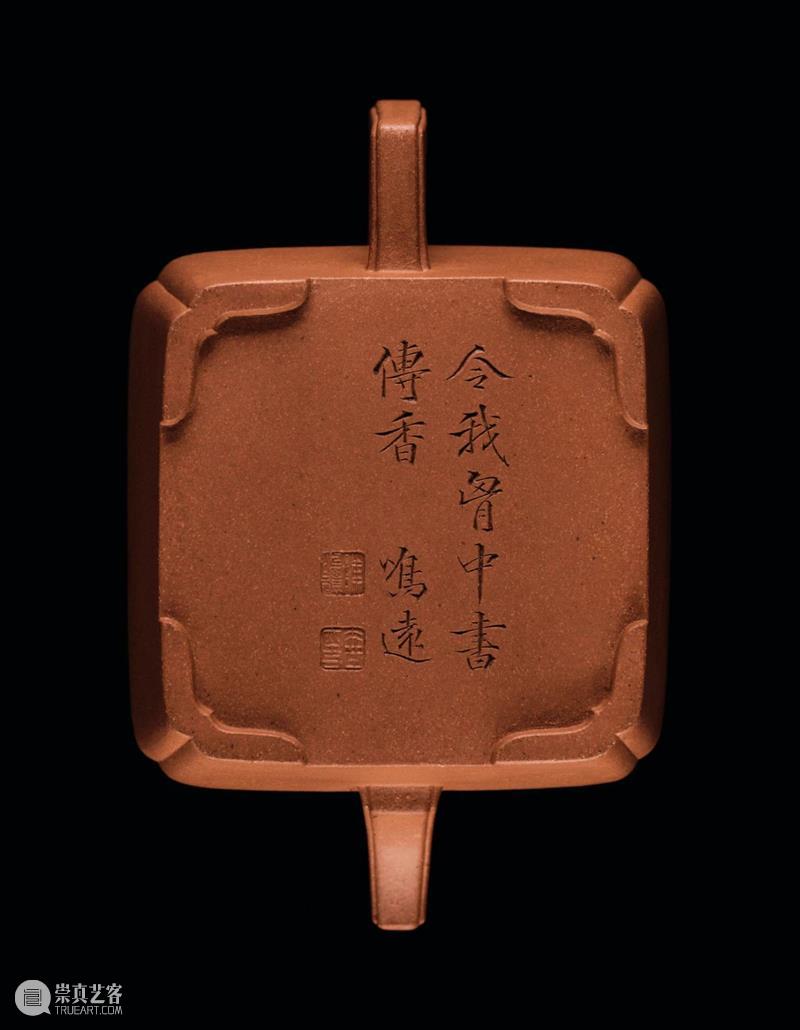 令我胷中書
傳香　鳴遠
崇真艺客
TRUEART.COM